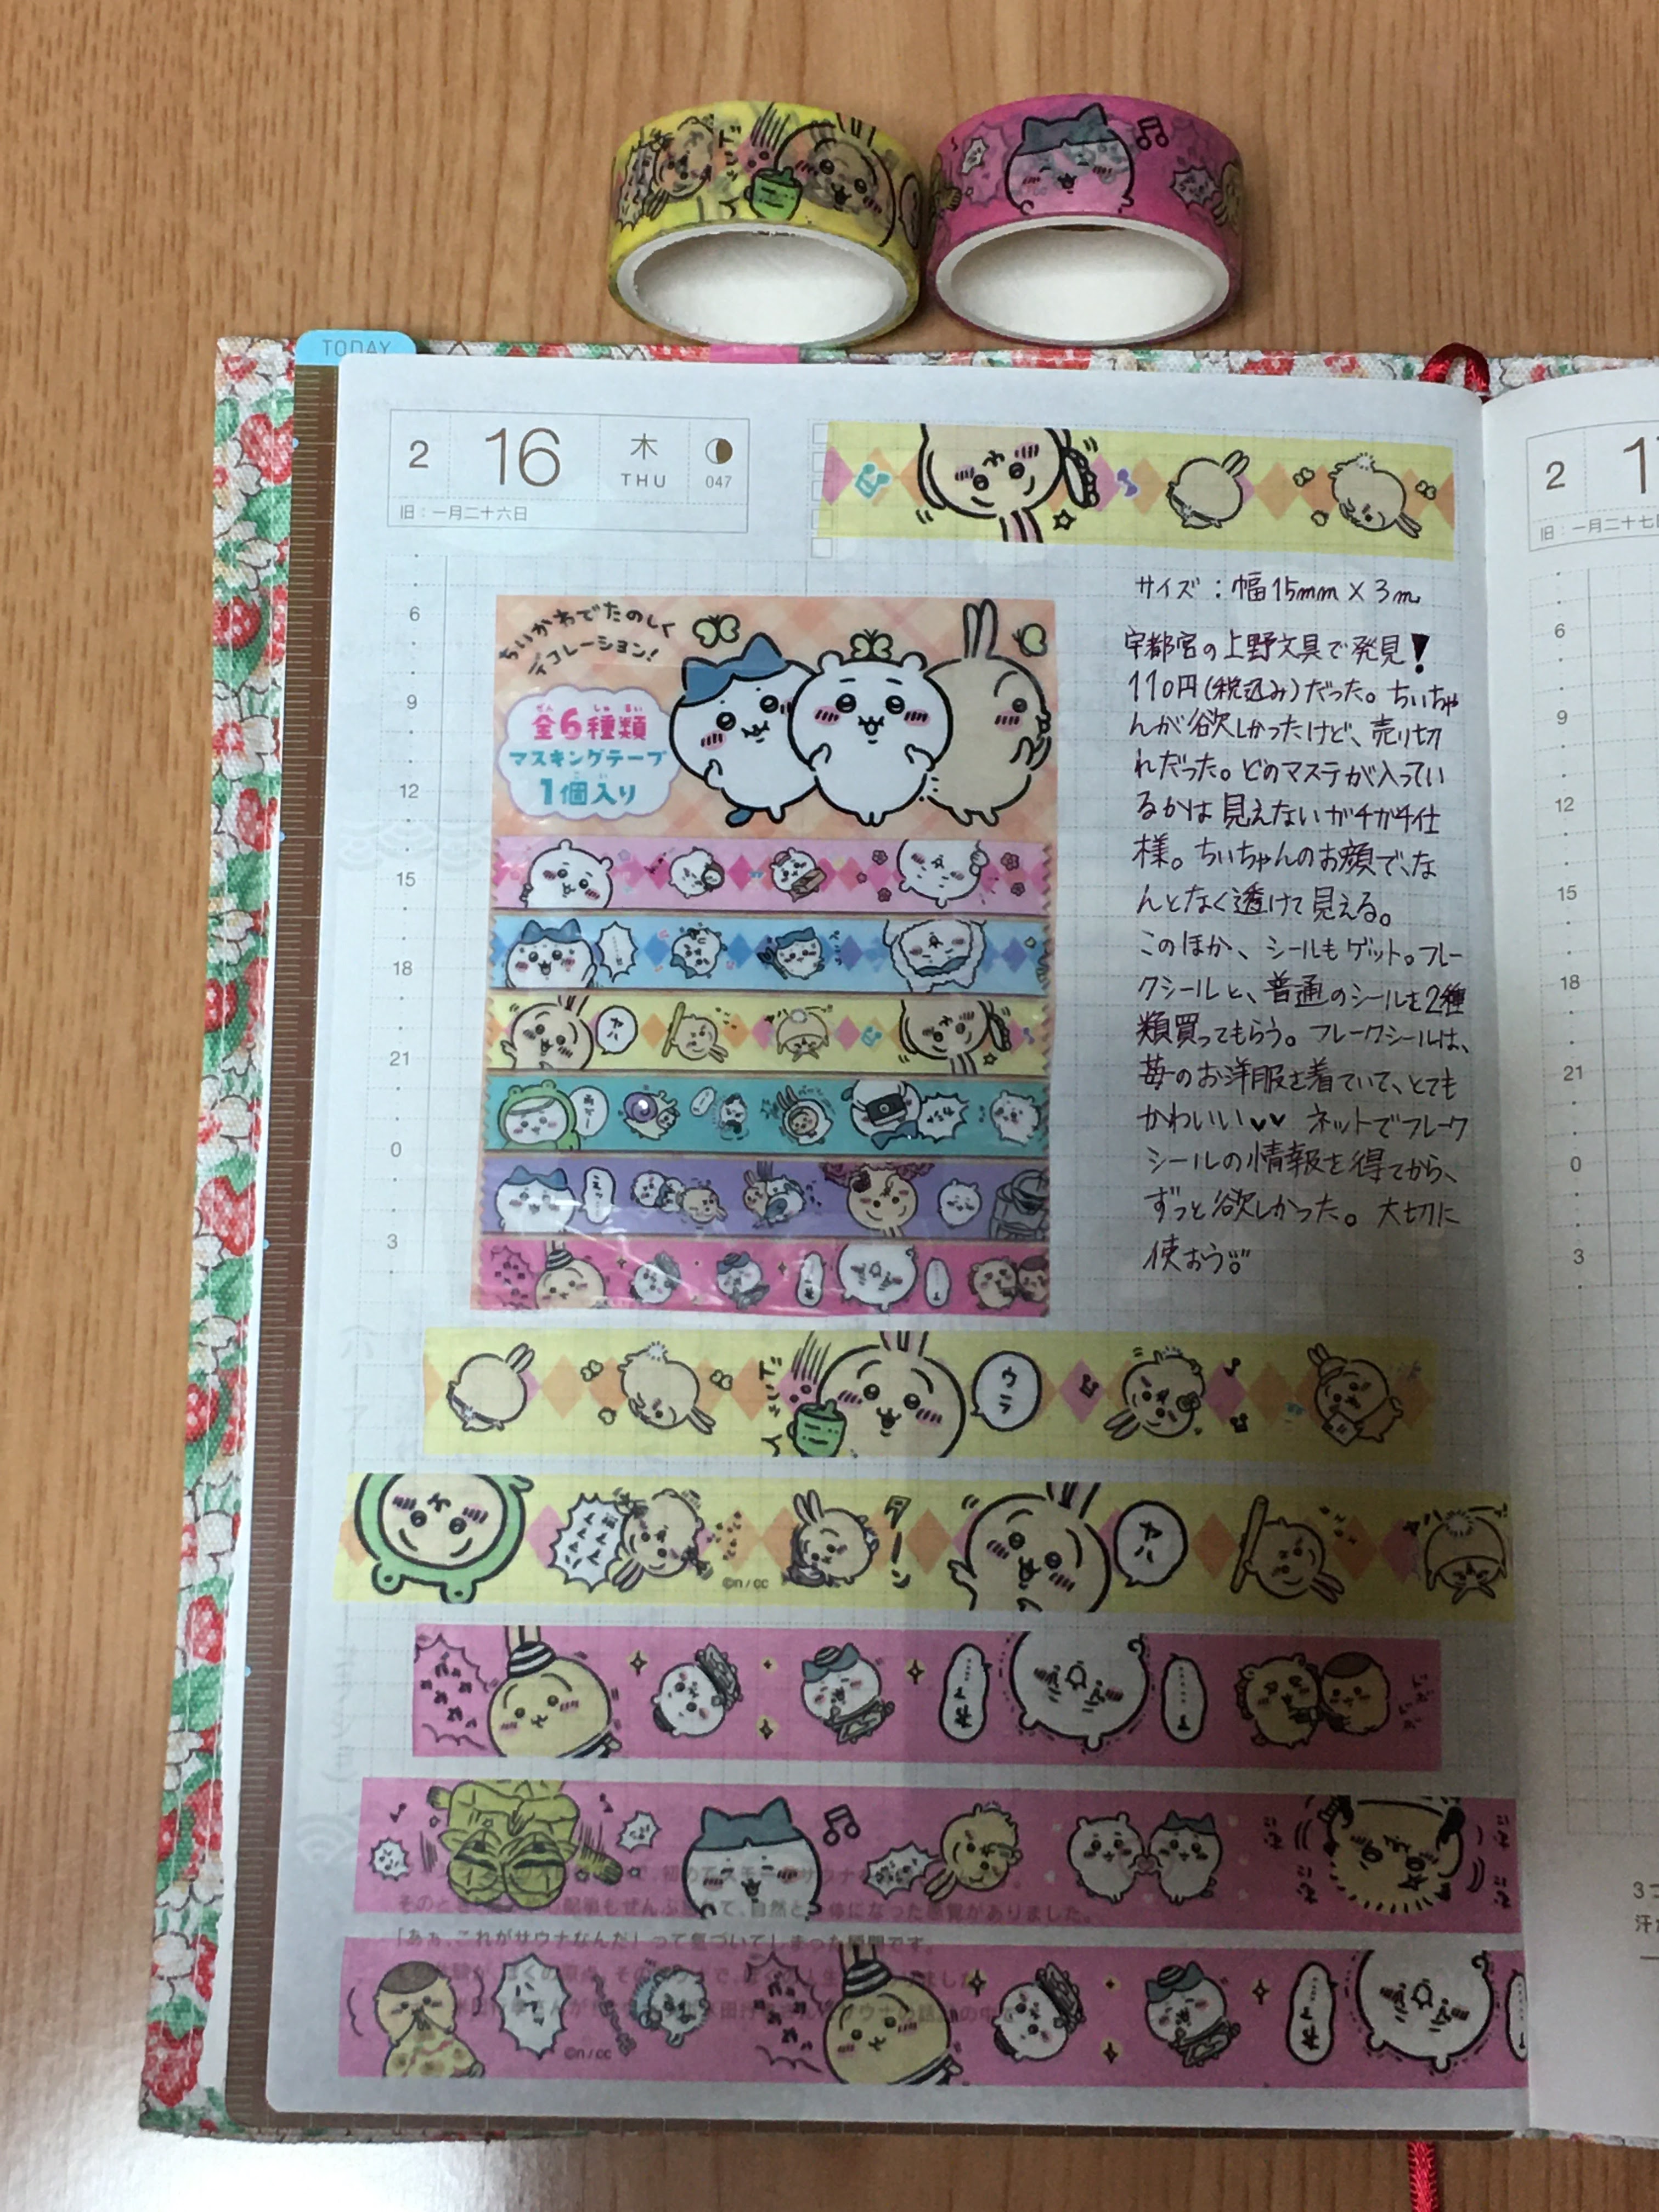 TODAY
2 16 木 THU 047
旧：一月二十六日
2
旧：一月二十七
6
9
12
15
18
21
0
3
ちいかわでたのしく
デコレーション!
全6種類
マスキングテープ
1個入り
サイズ：幅15mm×3m
宇都宮の上野文具で発見!
110円(税込み)だった。ちいちゃ
んが欲しかったけど、売り切
れだった。どのマステが入ってい
るかは見えないガチガチ仕
様。ちいちゃんのお顔で、な
んとなく透けて見える。
このほか、シールもゲット。フレー
クシールと、普通のシールを2種
類買ってもらう。フレークシールは、
苺のお洋服を着ていて、とても
かわいい♥♥ ネットでフレーク
シールの情報を得てから、
ずっと欲しかった。大切に
使おう。
ウラ
ヤハ
©n/cc
「あぁ、これがサウナなんだ」って気づいてしまった瞬間です。
©n/cc
6
9
12
15
18
21
0
3